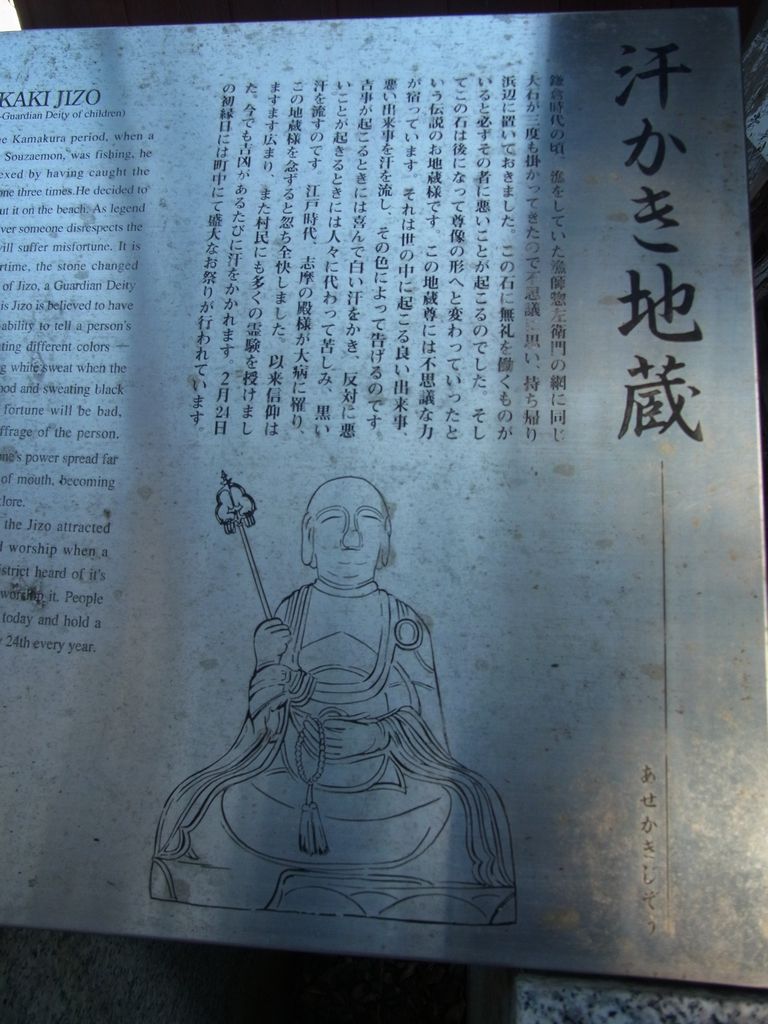 汗かき地蔵
あせかきじぞう
鎌倉時代の頃、漁をしていた漁師惣左衛門の網に同じ
大石が三度も掛かってきたので不思議に思い、持ち帰り
浜辺に置いておきました。この石に無礼を働くものが
いると必ずその者に悪いことが起こるのでした。そし
てこの石は後になって尊像の形へと変わっていったと
いう伝説のお地蔵様です。この地蔵尊には不思議な力
が宿っています。それは世の中に起こる良い出来事、
悪い出来事を汗を流し、その色によって告げるのです。
吉事が起こるときには喜んで白い汗をかき、反対に悪
いことが起きるときには人々に代わって苦しみ、黒い
汗を流すのです。江戸時代、志摩の殿様が大病に罹り、
この地蔵様を念ずると忽ち全快しました。以来信仰は
ますます広まり、また村民にも多くの霊験を授けまし
た。今でも吉凶があるたびに汗をかかれます。2月24日
の初縁日には町中にて盛大なお祭りが行われています。
KAKI JIZO
-Guardian Deity of children)
Kamakura period, when a
Souzaemon, was fishing, he
having caught the
three times.He decided to
it on the beach. As legend
someone disrespects the
will suffer misfortune. It is
the stone changed
of Jizo, a Guardian Deity
Jizo is believed to have
ability to tell a person's
different colors —
while sweat when the
and sweating black
fortune will be bad,
of the person.
power spread far
of mouth, becoming
the Jizo attracted
worship when a
heard of it's
worship it. People
today and hold a
24th every year.